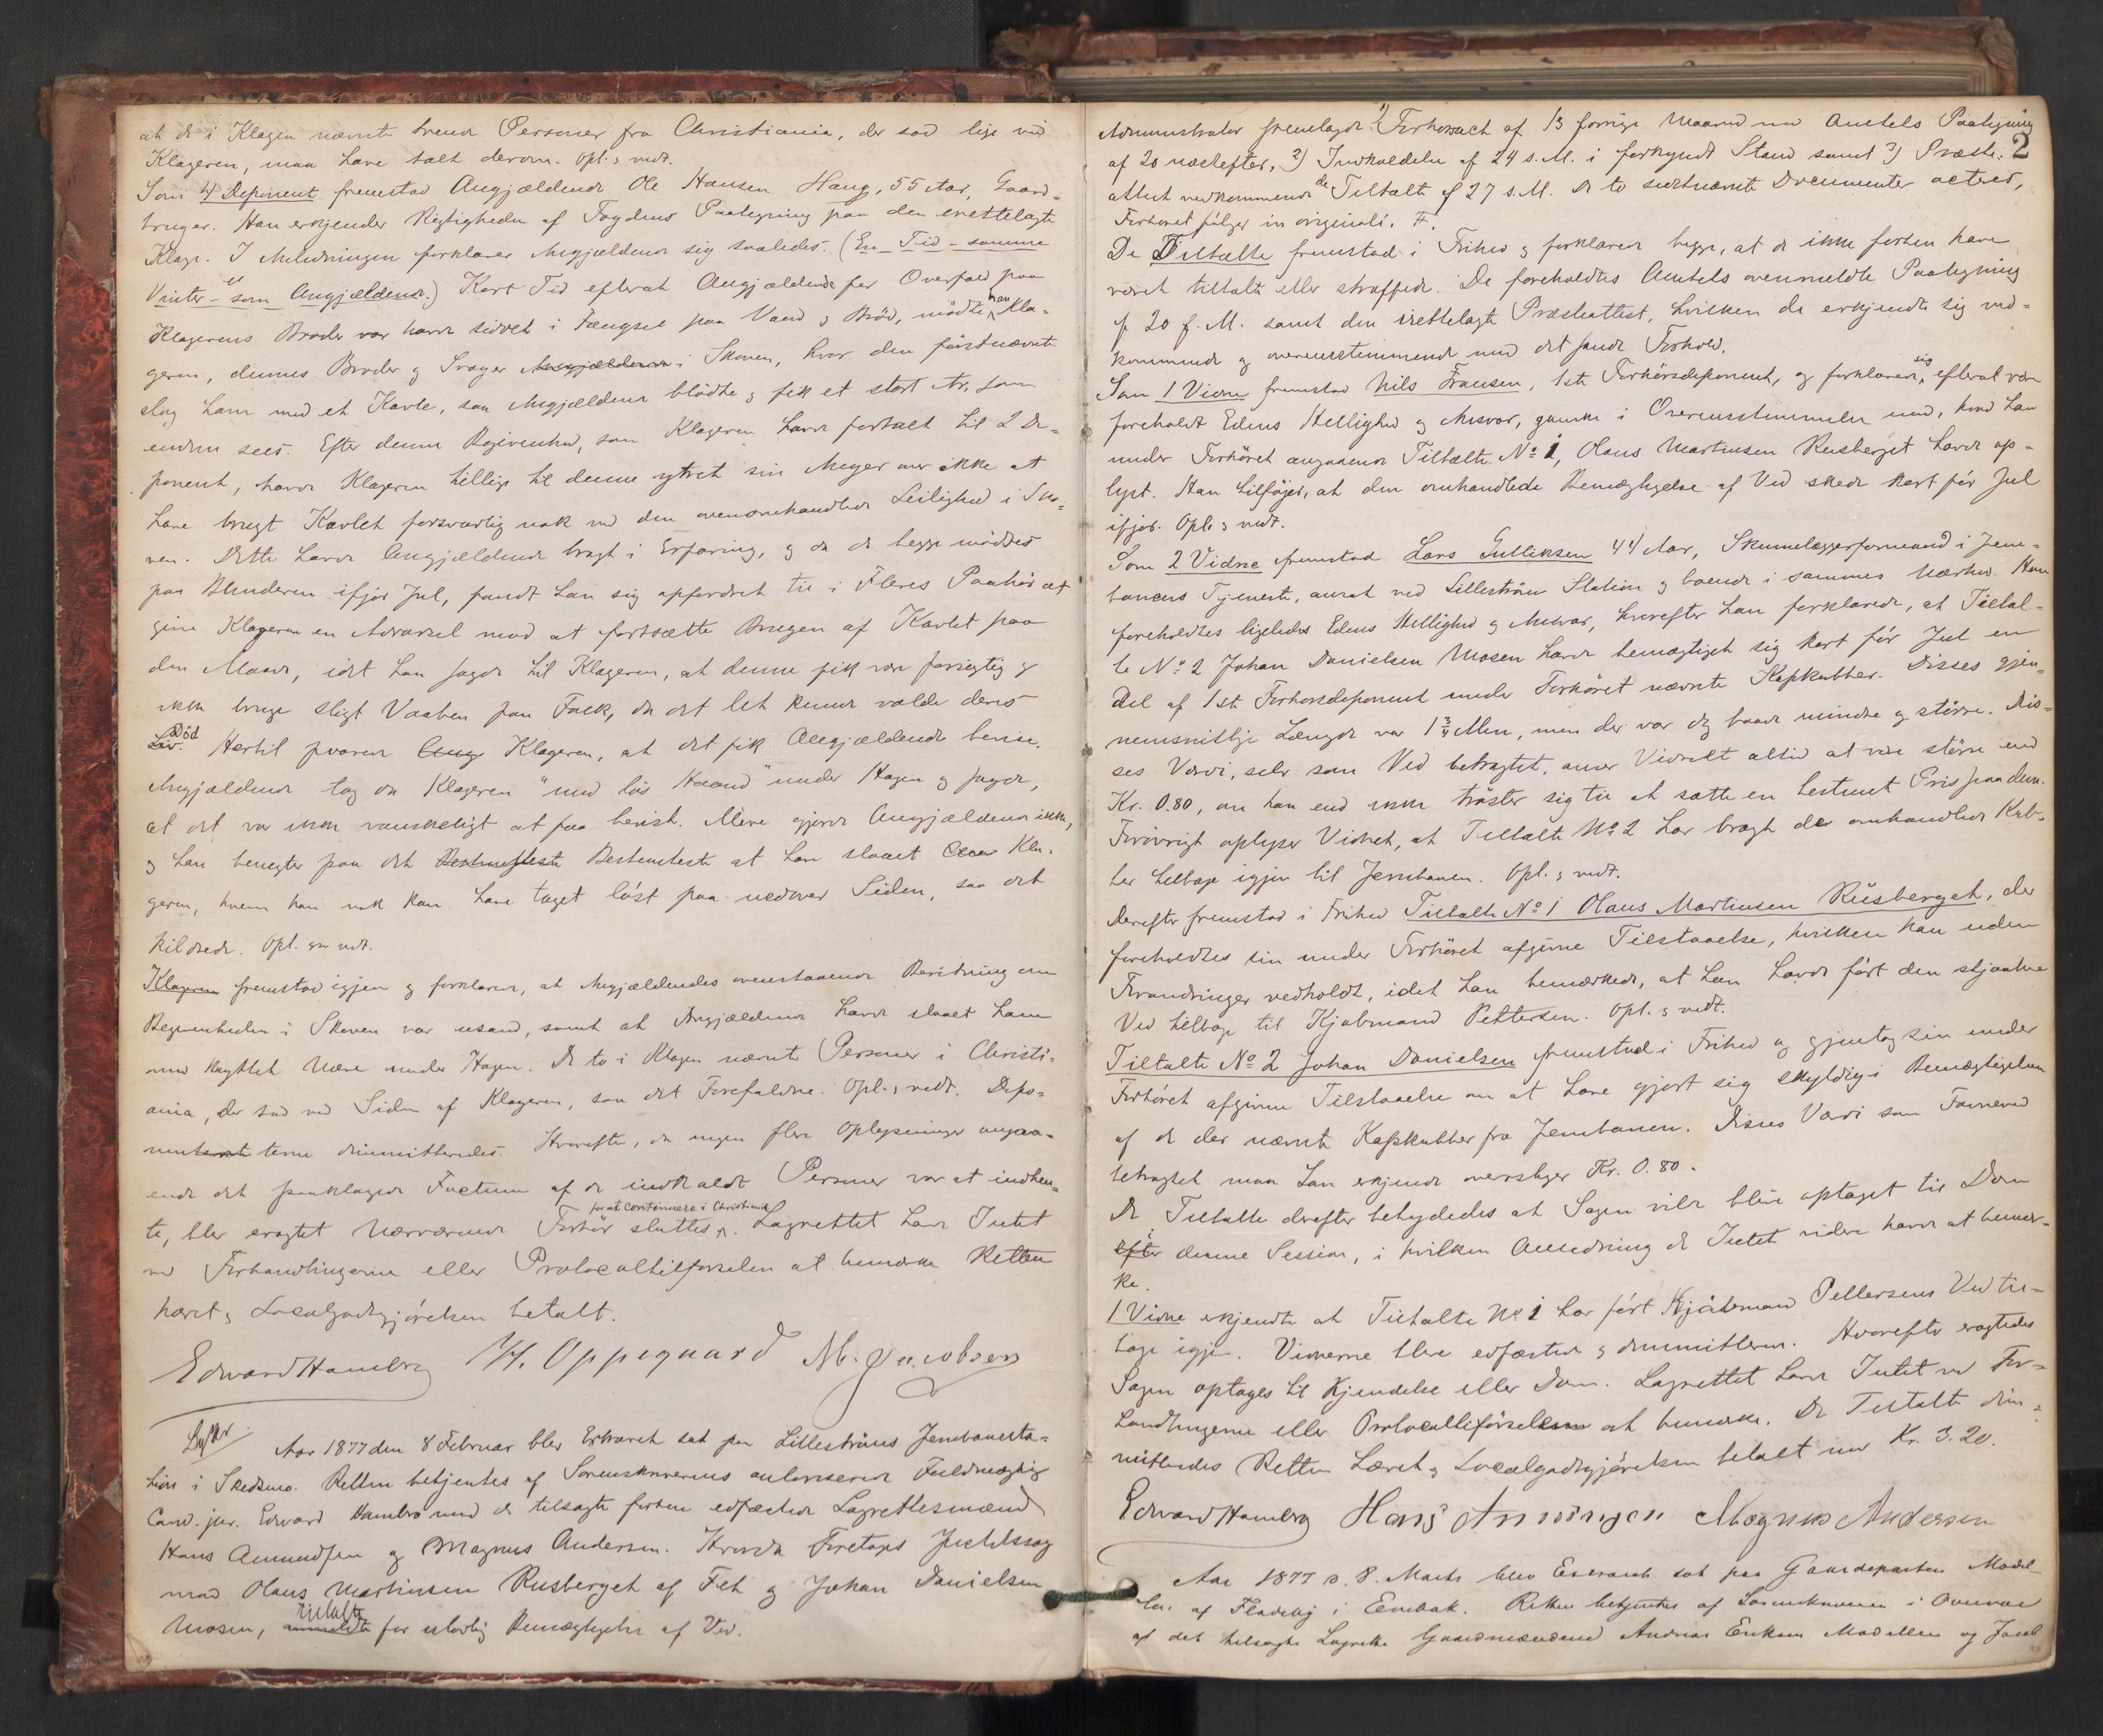 at de i Klagen nævnte tvende Personer fra Christiania, der sad lige ved
Klageren, maa have talt derom. Opl. & vedt.
Som 4 Deponent fremstod Angjældende Ole Hansen Haug, 55 Aar, Gaard-
bruger. Han erkjender Rigtigheden af Fogdens Paategning paa den irettelagte
Klage. I Anledningen forklarer Angjældende sig saaledes. (En Tid – samme
Vinter – som Angjældende.) Kort Tid efterat Angjældende for Overfald paa
Klagerens Broder var havde siddet i Fængsel paa Vand & Brød, mødte han Kla-
geren, dennes Broder og Svoger Angjældende i Skoven, hvor den førstnævnte
slog ham med et Kavle, saa Angjældende blødte & fik et stort Ar, som
endnu sees. Efter denne Begivenhed, som Klageren havde fortalt til 2 De-
ponent, havde Klageren tillige til denne ytret sin Anger over ikke at
have brugt Kavlet forsvarlig nok ved den ovenomhandlede Leilighed i Sko-
ven. Dette havde Angjældende bragt i Erfaring, og da de begge mødtes
paa Blinderen ifjor Jul, fandt han sig opfordret til i Fleres Paahør at
give Klageren en Advarsel mod at fortsætte Brugen af Kavlet paa
den Maade, idet han sagde til Klageren, at denne fik være forsigtig og
ikke bruge sligt Vaaben paa Folk, da det let kunde volde deres
Liv. Død Hertil svarede Ang Klageren, at det fik Angjældende bevise.
Angjældende tog da Klageren "med løs Haand" under Hagen og sagde,
at det var ikke vanskeligt at faa bevist. Mere gjorde Angjældende ikke,
& han benegter paa det Bestemteste at have slaaet Kla-
geren, hvem han nok kan have taget løst paa nedover Siden, saa det
kildrede. Opl. & vedt.
Klageren fremstod igjen & forklarer, at Angjældendes ovenstaaende Beretning om
Begivenheden i Skoven var usand, samt at Angjældende havde slaaet ham
med knyttet Næve under Hagen. De to i Klagen nævnte Personer i Christi-
ania, der sad ved Siden af Klageren, saa det Forefaldne. Opl. & vedt. Depo-
nenterne dimitteredes. Hvorefter, da ingen flere Oplysninger angaa-
ende det paaklagede Factum af de indkaldte Personer var at indhen-
te, blev eragtet Nærværende Forhør sluttes for at continuere i Christiania. Lagrettet havde Intet
ved Forhandlingerne eller Protocoltilførselen at bemærke Retten
hævet & Localgodtgjørelsen betalt.
Edward Hambro H. Oppegaard M. Jacobsen
Aar 1877 den 8 Februar blev Extraret sat paa Lillestrøms Jernbanesta-
tion i Skedsmo. Retten betjentes af Sorenskriverens autoriserede Fuldmægtig
Cand. jur. Edvard Hambro med de tilsagte forhen edfæstede Lagrettesmænd
Hans Amundsen og Magnus Andersen. Hvorda Foretoges Justitssag
mod Olaus Martinsen Rusberget af Fet og Johan Danielsen
Mosen, anmeldte tiltalte for ulovlig Bemægtigelse af Ved.
2
Administrator fremlagde 1) Forhørsact af 13 forrige Maaned med Amtets Paategning
af 20 næstefter, 2) Indkaldelse af 24 s. M. i forkyndt Stand samt 3) Præste-
attest vedkommende de Tiltalte af 27 s. M. De to sidstnævnte Documenter acteres,
Forhøret følger in originali.
De Tiltalte fremstod i Frihed & forklarer begge, at de ikke forhen have
været tiltalte eller straffede. De foreholdtes Amtets ovenmeldte Paategning
af 20 f. M. samt den irettelagte Præsteattest, hvilken de erkjendte sig ved-
kommende og overensstemmende med det sande Forhold.
Som 1 Vidne fremstod Nils Fransen, 1ste Forhørsdeponent, og forklarede sig, efterat være
foreholdt Edens Hellighed og Ansvar, ganske i Overensstemmelse med, hvad han
under Forhøret angaaende Tiltalte No 1, Olaus Martinsen Rusberget havde op-
lyst. Han tilføjer, at den omhandlede Bemægtigelse af Ved skede kort før Jul
ifjor. Opl. & vedt.
Som 2 Vidne fremstod Lars Gulliksen 44 Aar, Skinnelæggerformand i Jern-
banens Tjeneste, ansat ved Lillestrøm Station & boende i sammes Nærhed. Han
foreholdtes ligeledes Edens Hellighed og Ansvar, hvorefter han forklarede, at Tiltal-
te No 2 Johan Danielsen Mosen havde bemægtiget sig kort før Jul en
Del af 1ste Forhørsdeponent under Forhøret nævnte Kapkubber. Disses gjen-
nemsnitlige Længde var 1 3/4 Alen, men der var dog baade mindre og større. Dis-
ses Værdi, selv som Ved betragtet, anser Vidnet altid at være større end
Kr. 0.80, om han end ikke trøster sig til at sætte en bestemt Pris paa dem.
Forøvrigt oplyser Vidnet, at Tiltalte No 2 har bragt de omhandlede Kub-
ber tilbage igjen til Jernbanen. Opl. & vedt.
Derefter fremstod i Frihed Tiltalte No 1 Olaus Martinsen Rusberget, der
foreholdtes sin under Forhøret afgivne Tilstaaelse, hvilken han uden
Forandringer vedholdt, idet han bemærkede, at han havde ført den stjaalne
Ved tilbage til Kjøbmand Pettersen. Opl. & vedt.
Tiltalte No 2 Johan Danielsen fremstod i Frihed og gjentog sin under
Forhøret afgivne Tilstaaelse om at have gjort sig skyldig i Bemægtigelsen
af de der nævnte Kapkubber fra Jernbanen. Disses Værdi som Favneved
betragtet maa han erkjende overstiger Kr. 0.80.
De Tiltalte derefter betydedes at Sagen vilde blive optaget til Dom
efter denne Session, i hvilken Anledning de Intet videre havde at bemær-
ke.
1 Vidne erkjendte at Tiltalte No 1 har ført Kjøbmand Pettersens Ved til-
bage igjen. Vidnerne bleve edfæstede & dimitterede. Hvorefter eragtedes
Sagen optages til Kjendelse eller Dom. Lagrettet havde Intet ved For-
handlingerne eller Protocoltilførselen at bemærke. De Tiltalte dim-
mitteredes Retten hævet & Localgodtgjørelsen betalt med Kr. 3.20.
Edward Hambro Hans Amundsen Magnus Andersen
Aar 1877 d. 8. Marts blev Extraret sat paa Gaardeparten Model-
len af Fladeby i Enebak. Retten betjentes af Sorenskriveren i Overvær
af det tilsagte Lagrette Gaardmændene Andreas Eriksen Modellen og Jacob